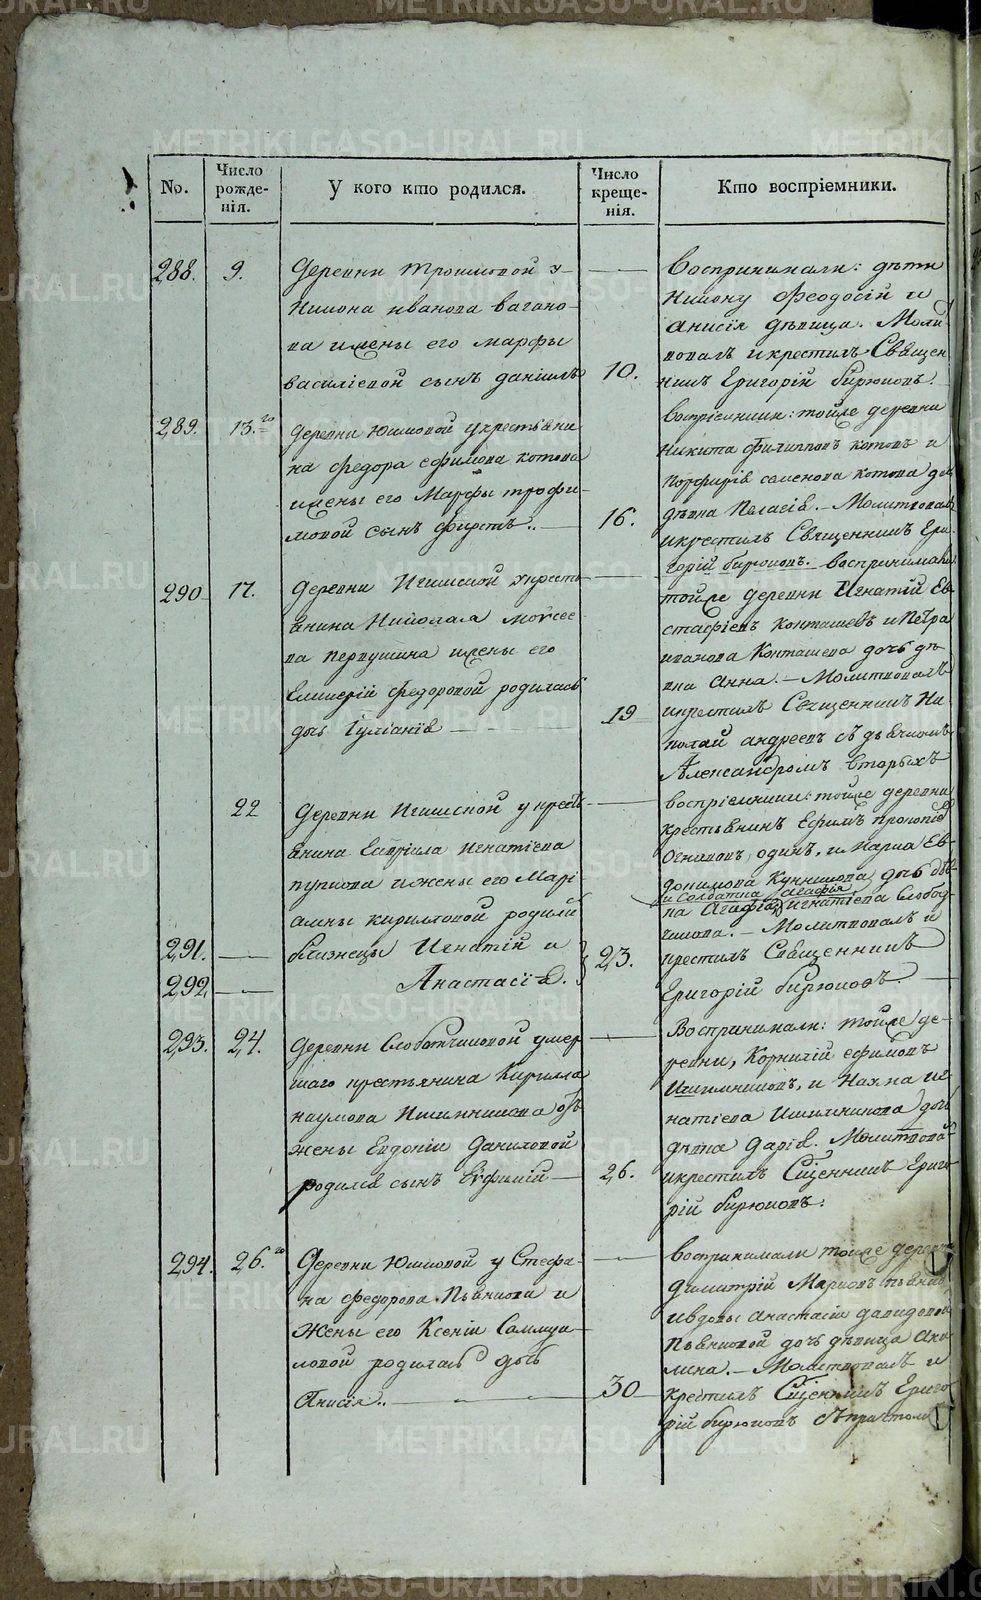 METRIKI.GASO-URAL.RU
No.
Число
рожде-
нія.
У кого кто родился.
Число
креще-
нія.
Кто воспріемники.
288.
9.
Деревни Трошковой у
Никона иванова вагано-
ва и жены его марфы
василіевой сынъ даніилъ
10.
Воспринимали: дѣти
Никону Феодосій и
анисія дѣвица. Моли
вовалъ и крестилъ Священ
никъ Григорій бирюковъ.
289.
13.го
Деревни Юшковой у крестьяни
на федора ефимова котова
и жены его Марфы трофи-
мовой сынъ
16.
воспріемники: тойже деревни
Никита филипповъ котовъ и
Порфирія семенова котова доч
дѣвка Пелагія. - Молитвовалъ
и крестилъ Священникъ Гри-
горій бирюковъ.
290
17.
Деревни Игишской у кресть
янина Николая моѵсее
ва первушина и жены его
Гликерій федоровой родилась
дочь Іуліанія
19
воспринимали
тойже деревни Игнатій Ев
стафіевъ Конташевъ и Петра
иванова Конташева дочь дѣ
вка анна. - Молитвовалъ
и крестилъ Священникъ Ни
колай андреевъ съ дьячкомъ
Александромъ Вторыхъ
22
Деревни Игишской у кресть-
янина Гавріила Игнатіева
пупкова и жены его Марі
амны кириловой родились
291.
близнецы Игнатій и
292.
Анастасія.
23.
воспріемники: тойже деревни
крестьянинъ Ефимъ прокопіев
одинъ, и Марка Ев
докимова дочь дѣв
и Солдатка агафія
ка Агафія игнатіева Слобод
чикова. - Молитвовалъ и
крестилъ Священникъ
Григорій бирюковъ.
293.
24.
Деревни Слободчиковой умер
шаго крестьянина Кирилла
наумова Ишимникова отъ
жены Евдокіи Даниловой
родился сынъ Евфимій
26.
Воспринимали: тойже де-
ревни, Корнилій ефимовъ
Ишимниковъ, и Нахма Иг
натіева Ишимникова дочь
дѣвка дарія. Молитвовал
и крестилъ Сщенникъ Григо
рій бирюковъ:
294.
26.го
Деревни Юшковой у Стефа-
на федорова Пьянкова и
жены его Ксеніи Самуи-
ловой родилась дочь
Анисія.
30
Воспринимали тойже дерев
димитрій Марковъ пьянков
и вдовы анастасіи давидовой
Пьянковой дочь дѣвица Аки
лина. - Молитвовалъ и
крестилъ Сщенникъ Григо
рій бирюковъ съ причтом